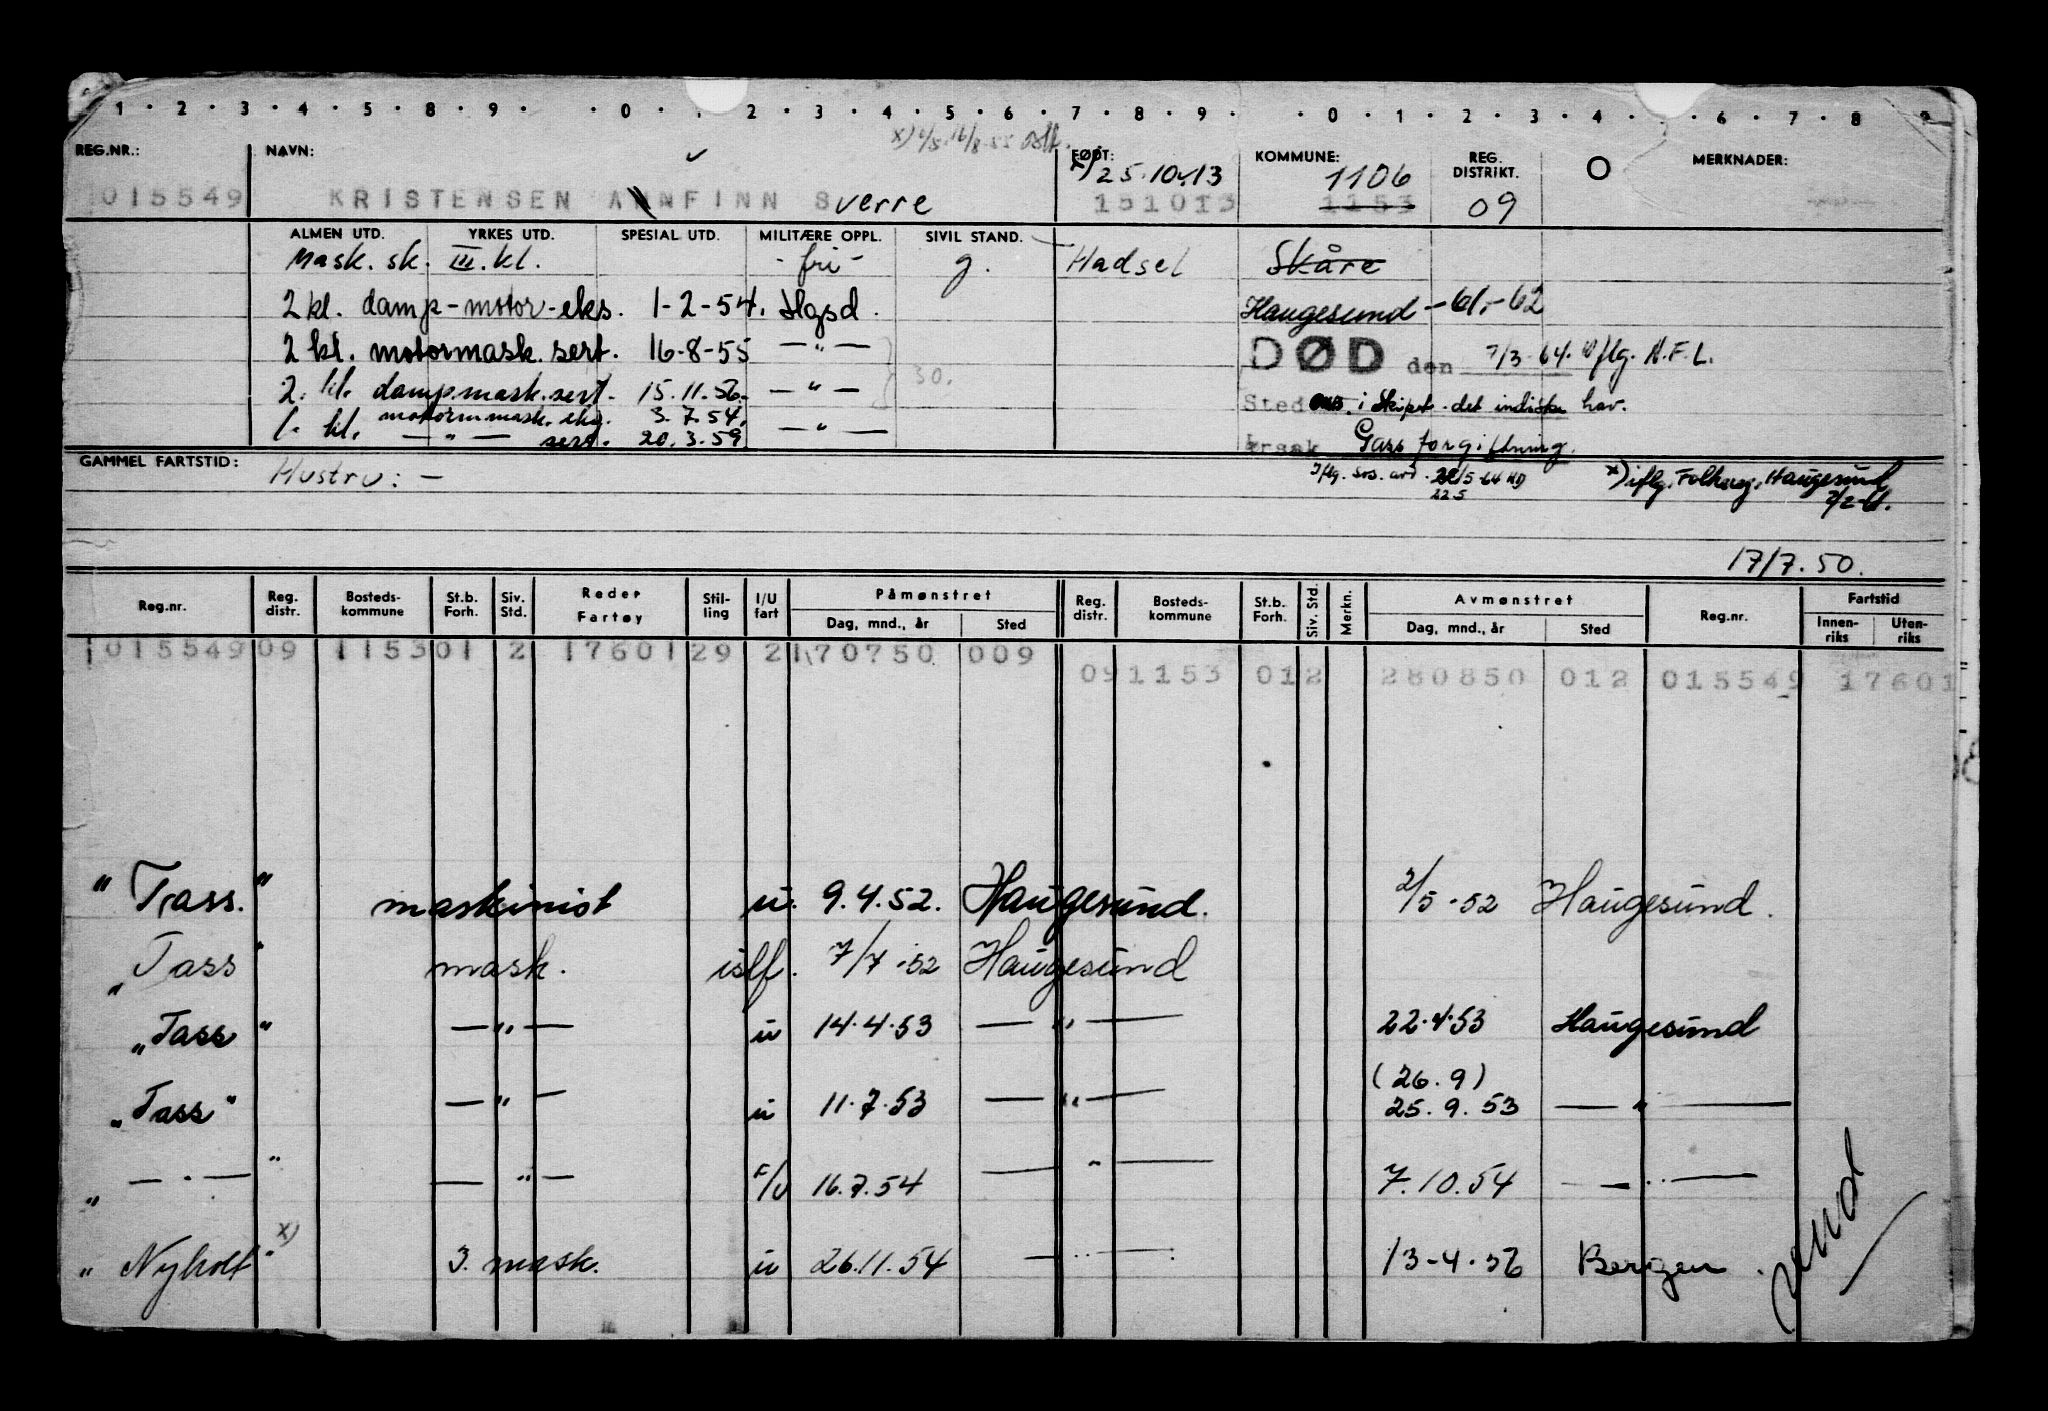 1 · 2 · 3 · 4 · 5 · 8 · 9 · · 0 · · 2 · 3 · 4 · 5 · 6 · 7 · 8 · 9 · · 0 · 1 · 2 · 3 · 4 · · 6 · 7 · 8 · 9
REG.NR.: NAVN: FØDT: KOMMUNE: REG. DISTRIKT. O MERKNADER:
x) 25.10.13 1106
015549 KRISTENSEN ANNFINN Sverre 151013 1153 09
ALMEN UTD. YRKES UTD. SPESIAL UTD. MILITÆRE OPPL. SIVIL STAND.
Mask. sk. III. kl. - fri - g. Hadsel Skåre
2 kl. damp-motor-eks. 1-2-54. Hgsd. Haugesund -61,-62
2 kl. motormask. sert. 16-8-55 — " — DØD den 7/3-64. iflg. N.F.L.
2. kl. dampmask. sert. 15.11.56. — " — 30. Sted omb. i Skipet. det indiske hav.
1. kl. motorm.mask. eks. 3.7.54.
— " — sert. 20.3.59. — " — Årsak Gass forgiftning.
GAMMEL FARTSTID: Hustru: — Iflg. sos. avd. 22/5-64 x) iflg. Folkereg. Haugesund
22 5 2/2-61.
17/7.50.
Reg.nr. Reg. distr. Bosteds-kommune St.b. Forh. Siv. Std. Reder Fartøy Stil-ling I/U fart Påmønstret Reg. distr. Bosteds-kommune St.b. Forh. Siv. Std. Merkn. Avmønstret Reg.nr. Fartstid
Dag, mnd., år Sted Dag, mnd., år Sted Innen-riks Uten-riks
015549 09 1153 01 2 17601 29 2 170750 009
09 1153 01 2 280850 012 015549 17601
" Trass." maskinist u. 9.4.52. Haugesund. 2/5-52 Haugesund.
„Tass" mask. islf. 7/7-52 Haugesund
„Tass" — " — u 14.4.53 — " — 22.4.53 Haugesund
(26.9)
„Tass" — " — u 11.7.53 — " — 25.9.53 — " —
„ — " — " — " — F/U 16.7.54 — " — 7.10.54 — " —
„ Nyholt" x) 3. mask. u 26.11.54 — " — 13-4-56 Bergen.